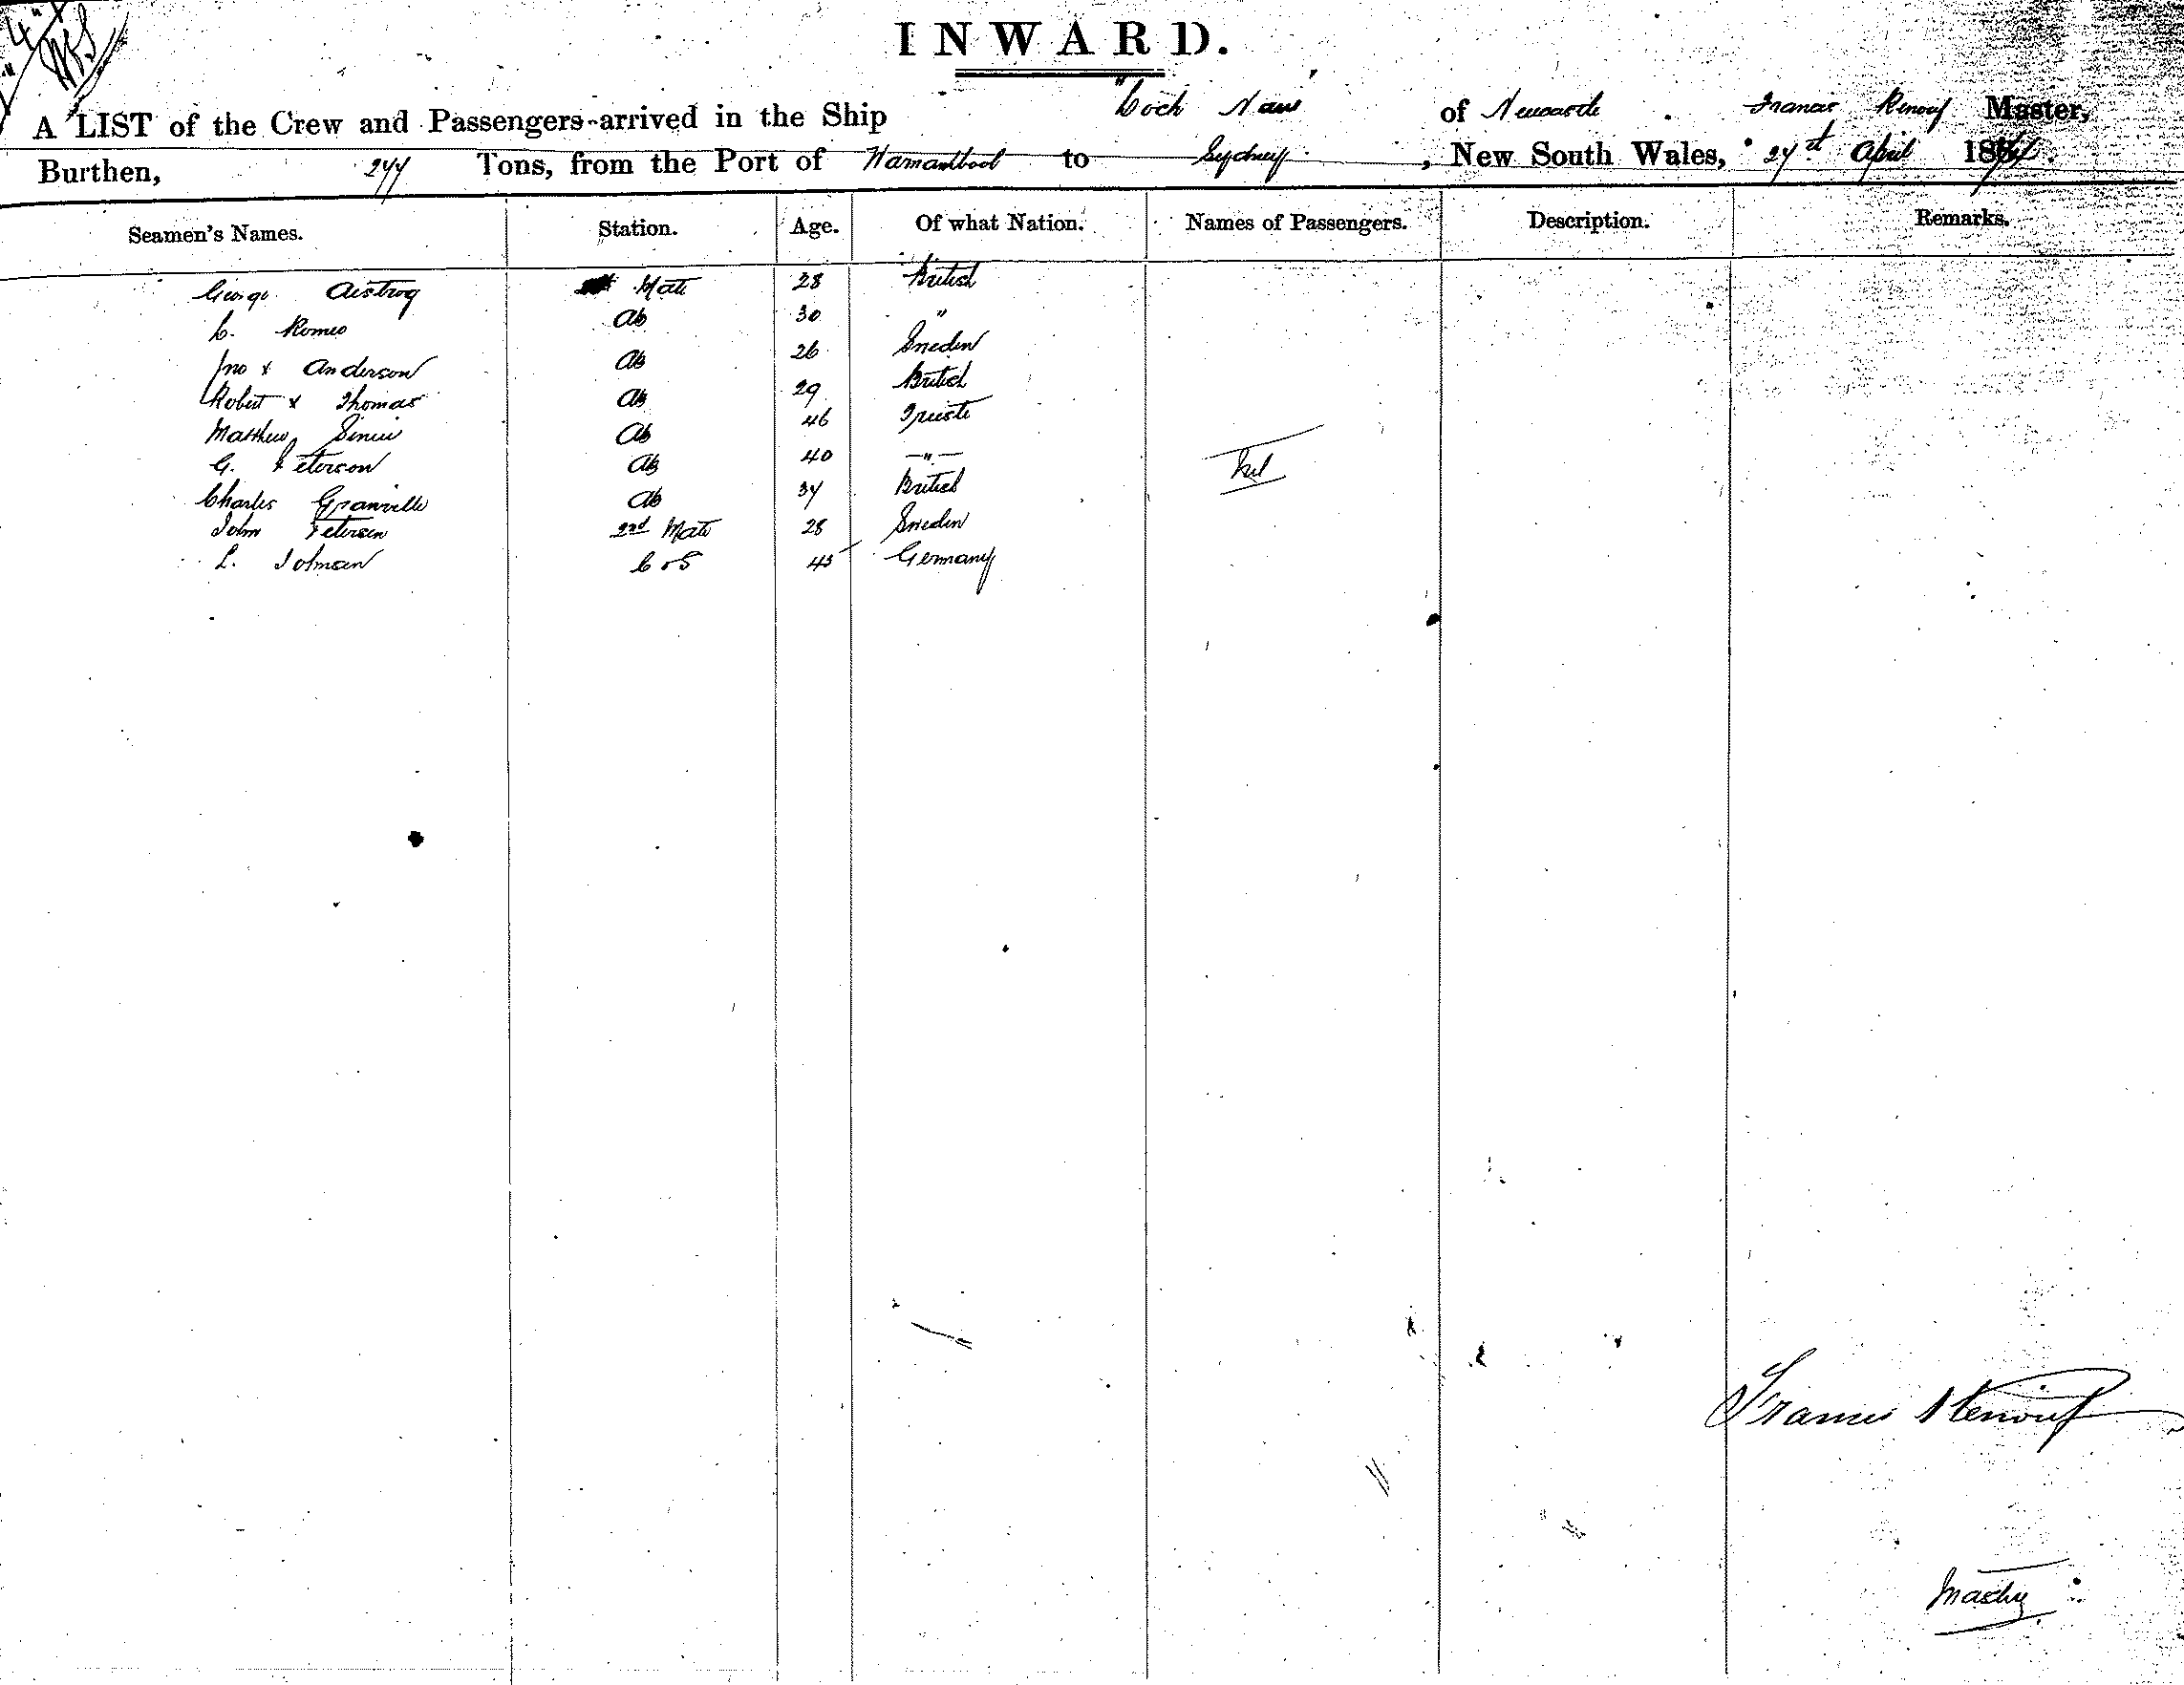 INWARD.
A LIST of the Crew and Passengers arrived in the Ship "Loch Naw" of Newcastle Francis Renouf Master,
Burthen, 277 Tons, from the Port of to Sydney, New South Wales, 27st April 18
Seamen's Names. Station. Age. Of what Nation. Names of Passengers. Description. Remarks.
George Mate 28 British
C. Romeo Ab 30 "
Jno x Anderson Ab 26 Sweden
Robert x Thomas Ab 29 British
Matthew Ab 46 Trieste
G. Peterson Ab 40 — " —
Charles Granville Ab 37 British
John Petersen 2nd Mate 28 Sweden
L. Tolman C & S 43 Germany
Nil
Francis Renouf
Master